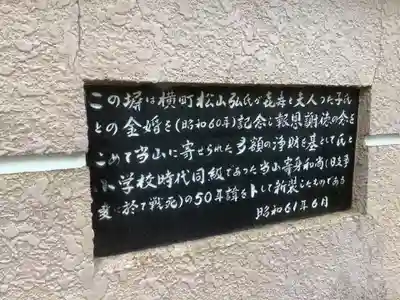 この塀は横町松山弘氏が喜寿と夫人つた子氏
との金婚を(昭和60年)記念し報恩謝徳の念を
こめて当山に寄せられた多額の浄財を基として氏と
小学校時代同級であった当山寄身和尚(日支事
変に於て戦死)の50年諱を卜して新装したものである
昭和61年6月